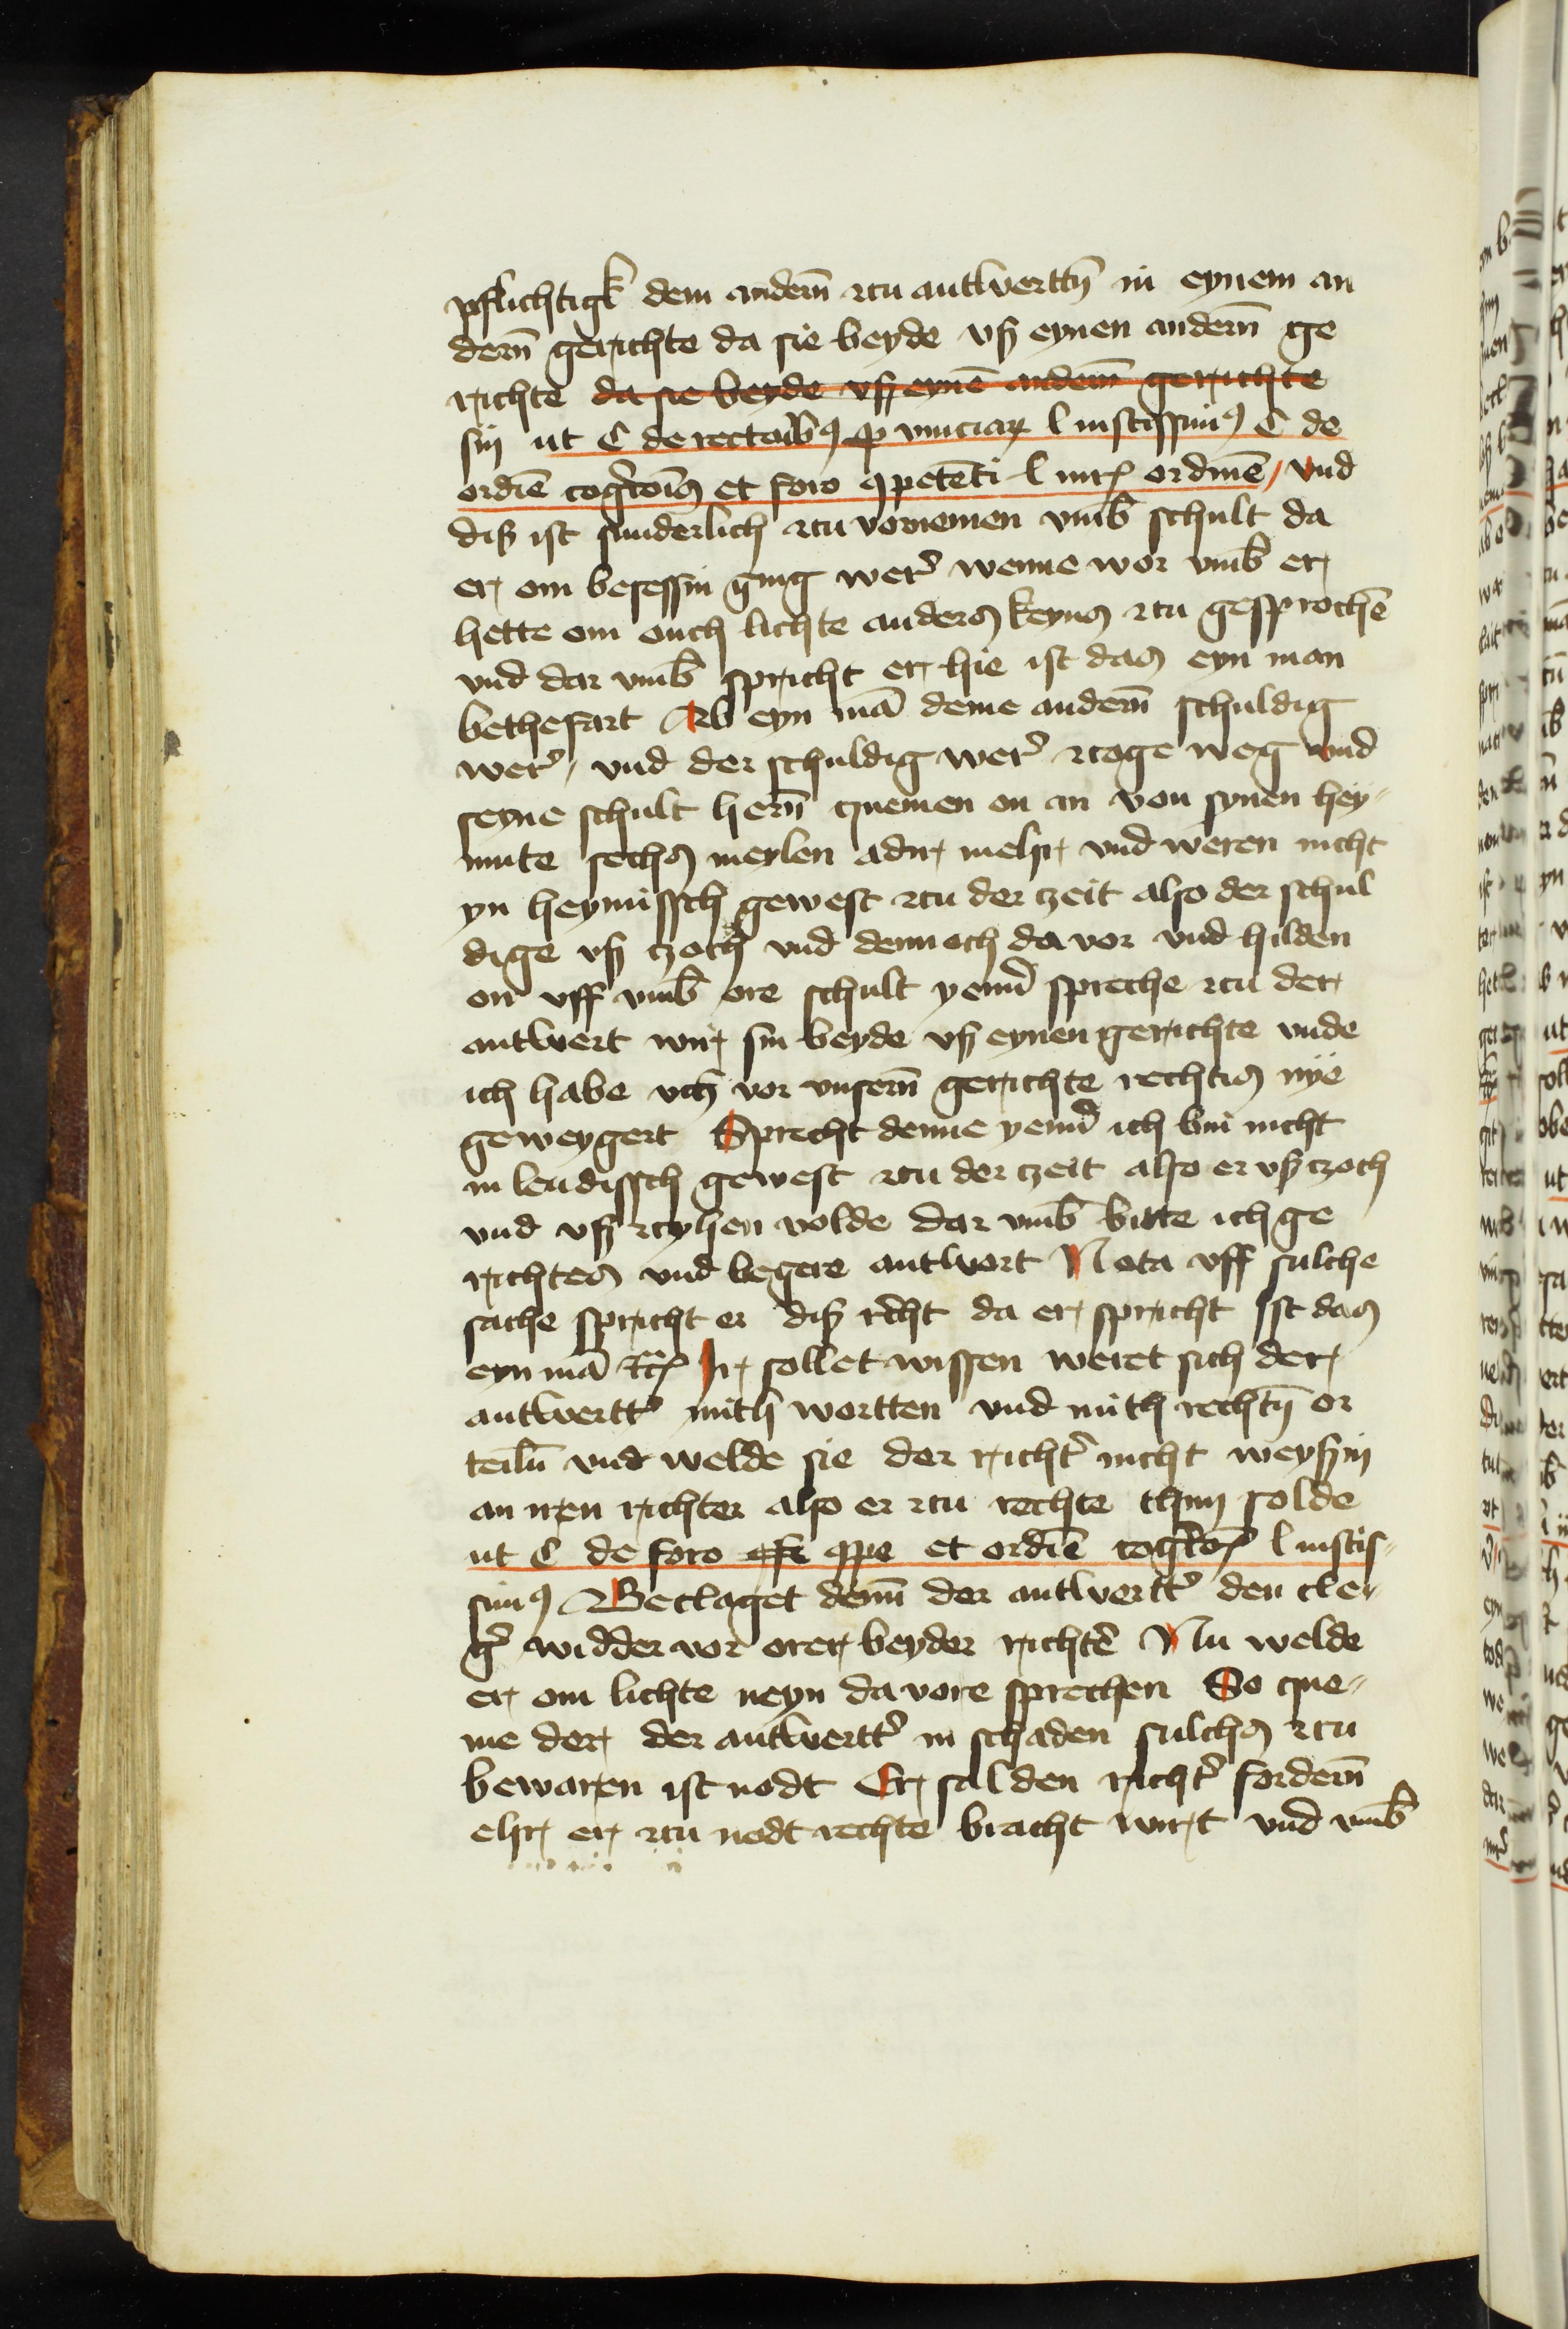 pflichtigk dem anderñ zcu antwerttñ in eynem an
derñ gerichte da sie beyde vß eynen anderñ ge
richte da sie beyde vß eynē anderñ gerichte
sin ut C de rectoībꝰ ꝓvinciaꝝ l iustissimꝰ C de
ordīe cogĉois et foro ꝯpetēti l iuris ordinē / vnd
diß ist sunderlich zcu vornemen vmb̄ schult da
er om besessin ging wer̉ wenne wor vmb̄ er
hette om ouch lichte anders keyns zcu gesprochē
vnd dar vmb̄ spricht er hie ist das eyn man
bethefart Ab eyn mā deme anderñ schuldig
wer̉ / vnd der schuldig wer̉ zcoge weg vnd
seyne schult herñ quemen on an von synen hey-
mute sechs meylen adir mehir vnd weren nicht
yn heymissch gewest zcu der czeit also der schul
dige vß czoch vnd dennoch da vor vnd hilden
on vff vmb̄ ore schult yenr̄ spreche zcu der
antwert wir sin beyde vß eynen gerichte vnde
ich habe vch vor vnserñ gerichte rechtis nye
geweygert Sprecht denne yenr̄ ich bin nicht
in lendissch gewest zcu der czeit also er vß czoch
vnd vß zcyhen wolde dar vmb̄ bitte ich ge
richtes vnd begere antwort Nota vff sulche
sache spricht er diß recht da er spricht Ist das
eyn mā etc̄ Ir sollet wissen weret sich der
antwertt̉ mith wortten vnd mith rechtñ or
teiln̄ vnd welde sie der richt̉ nicht weyßin
an iren richter also er zcu rechte thun solde
ut C de foro ꝯpe et ordīe cogĉois l iustis-
simꝰ Beclaget denn̄ der antwertt̉ den cle-
g̉ widder vor orer beyder richtē Nu welde
er om lichte neyn da vore sprechen So que-
me der der antwertt̉ in schaden sulchs zcu
bewaren ist nodt Er sal den richt̉ forderñ
ehir er zcu nodt rechte bracht wirt vnd vmb̄